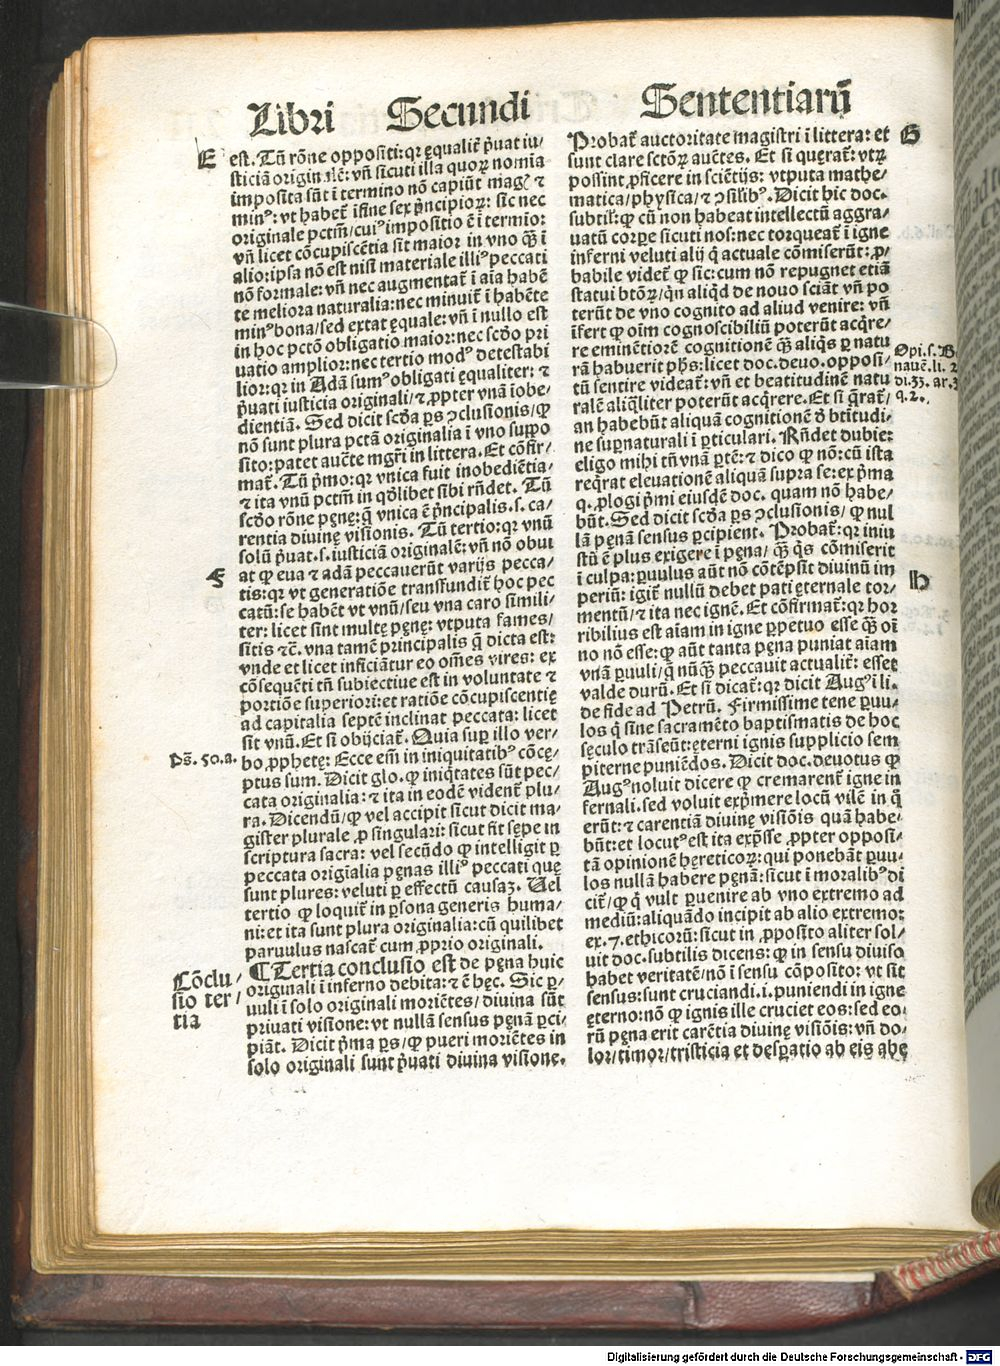 Libri Secundi Sententiarū
E est. Tū rōne oppositi: qr ęqualit̃ p̃uat iu/
sticiā origin alē: vñ sicuti illa quoꝝ nomīa
imposita sūt ī termino nō capiūt magꝭ ⁊
minꝰ: vt habet̃ īfine sex p̃ncipioꝝ: sic nec
originale pctm̄/cuiꝰ impositio ē ī termio:
vñ licet cōcupiscētia sit maior in vno q̄ꝫ ī
alio: ipsa nō est nisi materiale illiꝰ peccati
nō formale: vñ nec augmentat̃ ī aīa habē
te meliora naturalia: nec minuit̃ ī habēte
minꝰ bona/sed extat ęquale: vñ ī nullo est
in hoc pctō obligatio maior: nec scđo pri
uatio amplior: nec tertio modꝰ detestabi
lior: qr in Adā sumꝰ obligati ęqualiter: ⁊
p̃uati iusticia originali/⁊ ꝓpter vnā īobe/
dientiā. Sed dicit scđa ꝑs ↄclusionis/ꝙ
nō sunt plura pctā originalia ī vno suppo
sito: patet aucte mgr̄i in littera. Et cōfir/
mat̃. Tū p̃mo: qr vnica fuit inobediētia/
⁊ ita vnū pctm̄ in qđlibet sibi rñdet. Tū
scđo rōne pęnę: q̄ vnica ē p̃ncipalis .s. ca/
rentia diuinę visionis. Tū tertio: qr vnū
solū p̃uat .s. iusticiā originalē: vñ nō obui
F at ꝙ eua ⁊ adā peccauerūt varijs pecca/
tis: qr vt generatiōe transfundit̃ hoc pec
catū: se habēt vt vnū/seu vna caro simili/
ter: licet sint multę pęnę: vtputa fames/
sitis ⁊ c̄. vna tamē principalis q̄ dicta est:
vnde et licet inficiātur eo om̄es vires: ex
cōsequēti tñ subiectiue est in voluntate ⁊
portiōe superiori: et ratiōe cōcupiscentię
ad capitalia septē inclinat peccata: licet
sit vnū. Et si obijciat̃. Quia suꝑ illo ver/
Ps̄. 50. a. bo ꝓphetę: Ecce em̄ in iniquitatibꝰ cōcę/
ptus sum. Dicit glo. ꝙ iniq̄tates sūt pec/
cata originalia: ⁊ ita in eodē vident̃ plu/
ra. Dicendū/ꝙ vel accipit sicut dicit ma/
gister plurale ꝓ singulari: sicut fit sępe in
scriptura sacra: vel secūdo ꝙ intelligit ꝑ
peccata origīalia pęnas illiꝰ peccati quę
sunt plures: veluti ꝑ effectū causaꝫ. Uel
tertio ꝙ loquit̃ in ꝑsona generis huma/
ni: et ita sunt plura originalia: cū quilibet
paruulus nascat̃ cum ꝓprio originali.
Cōclu/
sio ter/
tia
¶ Tertia conclusio est de pęna huic
originali ī inferno debita: ⁊ ē hęc. Sic ꝑ/
uuli ī solo originali moriētes/diuina sūt
priuati visione: vt nullā sensus pęnā ꝑci/
piāt. Dicit p̃ma ꝑs/ꝙ pueri moriētes in
solo originali sunt p̃uati diuina visione.
Probat̃ auctoritate magistri ī littera: et G
sunt clare sctōꝝ auctes. Et si quęrat̃: vtꝝ
possint ꝓficere in sciētijs: vtputa mathe/
matica/physica/⁊ ↄsilibꝰ. Dicit hic doc.
subtil: ꝙ cū non habeat intellectū aggra/
uatū corꝑe sicuti nos: nec torqueat̃ ī igne
inferni veluti alij q̄ actuale cōmiserūt: ꝓ/
babile videt̃ ꝙ sic: cum nō repugnet etiā
statui btōꝝ/qn aliq̄d de nouo sciāt vñ po
terūt de vno cognito ad aliud venire: vñ
īfert ꝙ oīm cognoscibiliū poterūt acq̄re/
re eminētiorē cognitionē q̄ꝫ aliq̄s ꝑ natu
rā habuerit phs: licet doc. deuo. opposi/
tū sentire videat̃: vñ et beatitudinē natu
ralē aliq̄liter poterūt acq̄rere. Et si q̄rat̃/
Opi. s. Bo
nauē. li. 2
di. 33. ar. 3
q. 2.
an habebūt aliquam cognitionē đ btītudi/
ne suꝑnaturali ī ꝑticulari. Rñdet dubie:
eligo mihi tñ vnā ꝑtē: ⁊ dico ꝙ nō: cū ista
req̄rat eleuationē aliquā supra se: ex p̃ma
q. ꝓlogi p̃mi eiusdē doc. quam nō habe/
būt. Sed dicit scđa ꝑs ↄclusionis/ꝙ nul
lā pęnā sensus ꝑcipient. Probat̃: qr iniu
stū ē plus exigere ī pęna/q̄ꝫ q̄s cōmiserit
ī culpa: ꝑuulus aūt nō cōtēpsit diuinū im H
periū: igit̃ nullū debet pati ęternale tor/
mentū/⁊ ita nec ignē. Et cōfirmat̃: qr hor
ribilius est aīam in igne ꝑpetuo esse q̄ꝫ oī
no nō esse: ꝙ aūt tanta pęna puniat aīam
vnā ꝑuuli/q̄ nūq̄ꝫ peccauit actualit̃: esset
valde durū. Et si dicat̃: qr dicit Augꝰ ī li.
de fide ad Petrū. Firmissime tene ꝑuu/
los q̄ sine sacramēto baptismatis de hoc
sęculo trāseūt: ęterni ignis supplicio sem
piterne puniēdos. Dicit doc. deuotus ꝙ
Augꝰ noluit dicere ꝙ cremarent̃ igne in
fernali. sed voluit exp̃mere locū vilē in q̄
erūt: ⁊ carentiā diuinę visiōis quā habe/
būt: et locutꝰ est ita exp̃sse ꝓpter opposi/
tā opinionē hęreticoꝝ: qui ponebāt ꝑuu/
los nullā habere pęnā: sicut ī moralibꝰ di
cit̃/ꝙ q̄ vult ꝑuenire ab vno extremo ad
mediū: aliquādo incipit ab alio extremo:
ex. 7. ethicorū: sicut in ꝓposito aliter sol/
uit doc. subtilis dicens: ꝙ in sensu diuiso
habet veritatē/nō ī sensu cōposito: vt sit
sensus: sunt cruciandi .i. puniendi in igne
ęterno: nō ꝙ ignis ille cruciet eos: sed eo/
rū pęna erit carētia diuinę visiōis: vñ do/
lor/timor/tristicia et desꝑatio ab eis abę
Digitalisierung gefördert durch die Deutsche Forschungsgemeinschaft - DFG